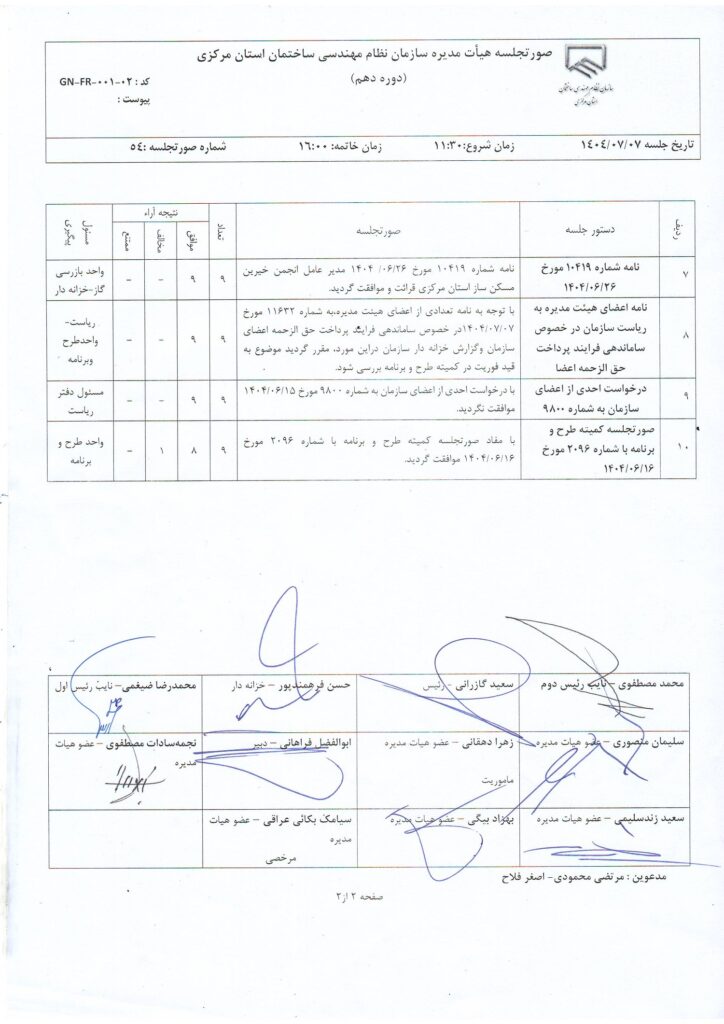 صورتجلسه هیأت مدیره سازمان نظام مهندسی ساختمان استان مرکزی
(دوره دهم)
سازمان نظام مهندسی ساختمان
استان مرکزی
کد : GN-FR-۰۰۱-۰۲
پیوست :
تاریخ جلسه ۱۴۰۴/۰۷/۰۷ زمان شروع:۱۱:۳۰ زمان خاتمه: ۱۶:۰۰ شماره صورتجلسه :۵۴
ردیف دستور جلسه صورتجلسه تعداد نتیجه آراء مسئول پیگیری
موافق مخالف ممتنع
۷
نامه شماره ۱۰۴۱۹ مورخ
۱۴۰۴/۰۶/۲۶
نامه شماره ۱۰۴۱۹ مورخ ۱۴۰۴ /۰۶/۲۶ مدیر عامل انجمن خیرین
مسکن ساز استان مرکزی قرائت و موافقت گردید.
۹ ۹ – –
واحد بازرسی
گاز-خزانه دار
۸
نامه اعضای هیئت مدیره به
ریاست سازمان در خصوص
ساماندهی فرایند پرداخت
حق الزحمه اعضا
با توجه به نامه تعدادی از اعضای هیئت مدیره،به شماره ۱۱۶۳۲ مورخ
۱۴۰۴/۰۷/۰۷در خصوص ساماندهی فرایند پرداخت حق الزحمه اعضای
سازمان وگزارش خزانه دار سازمان دراین مورد، مقرر گردید موضوع به
قید فوریت در کمیته طرح و برنامه بررسی شود.
۹ ۹ – –
ریاست-
واحدطرح
وبرنامه
۹
درخواست احدی از اعضای
سازمان به شماره ۹۸۰۰
با درخواست احدی از اعضای سازمان به شماره ۹۸۰۰ مورخ ۱۴۰۴/۰۶/۱۵
موافقت نگردید.
۹ ۹ – –
مسئول دفتر
ریاست
۱۰
صورتجلسه کمیته طرح و
برنامه با شماره ۲۰۹۶ مورخ
۱۴۰۴/۰۶/۱۶
با مفاد صورتجلسه کمیته طرح و برنامه با شماره ۲۰۹۶ مورخ
۱۴۰۴/۰۶/۱۶ موافقت گردید.
۹ ۸ ۱ –
واحد طرح و
برنامه
محمد مصطفوی – نایب رئیس دوم
سعید گازرانی - رئیس
حسن فرهمندپور – خزانه دار
محمدرضا ضیغمی – نایب رئیس اول
سلیمان منصوری – عضو هیات مدیره
زهرا دهقانی – عضو هیات مدیره
ماموریت
ابوالفضل فراهانی – دبیر
نجمه‌سادات مصطفوی – عضو هیات
مدیره
سعید زندسلیمی – عضو هیات مدیره
بهزاد بیگی – عضو هیات مدیره
سیامک بکائی عراقی – عضو هیات
مدیره
مرخصی
مدعوین : مرتضی محمودی- اصغر فلاح
صفحه ۲ از۲